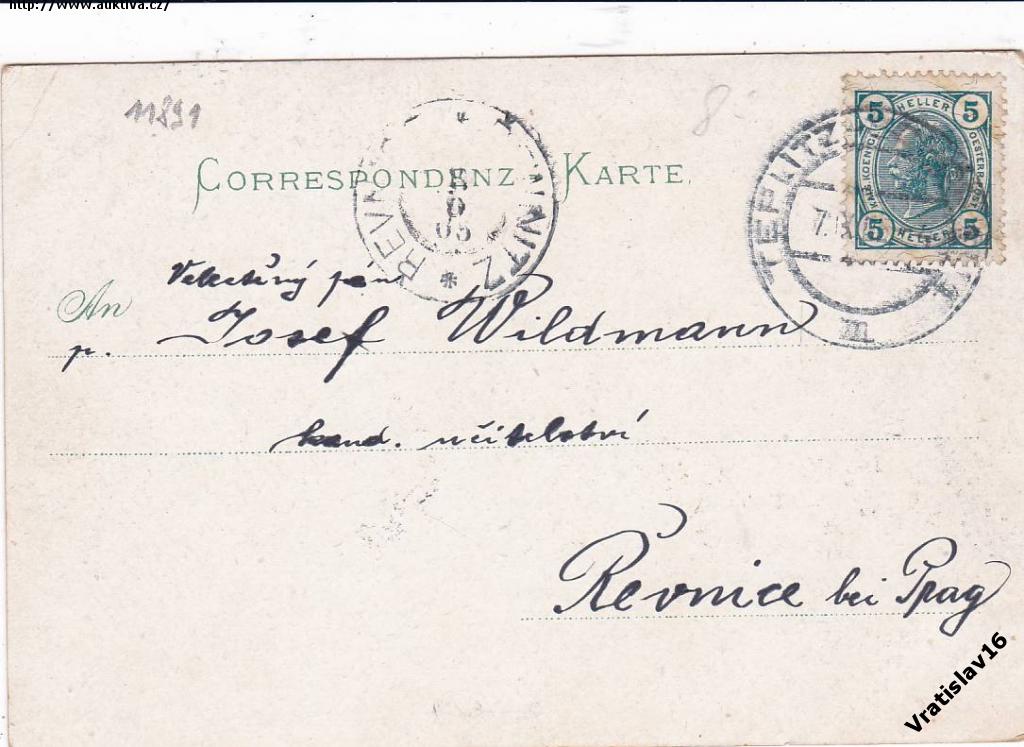 http://www.auktiva.cz/
11891
8
CORRESPONDENZ KARTE.
5 HELLER 5
KAIS. KOENIGL. OESTERR. POST
5 HELLER 5
TEPLITZ
7.IX
m
ŘEVNI
NITZ
05
An
Velectěný pán
p. Josef Wildmann
kand. učitelství
Řevnice bei Prag
Vratislav16